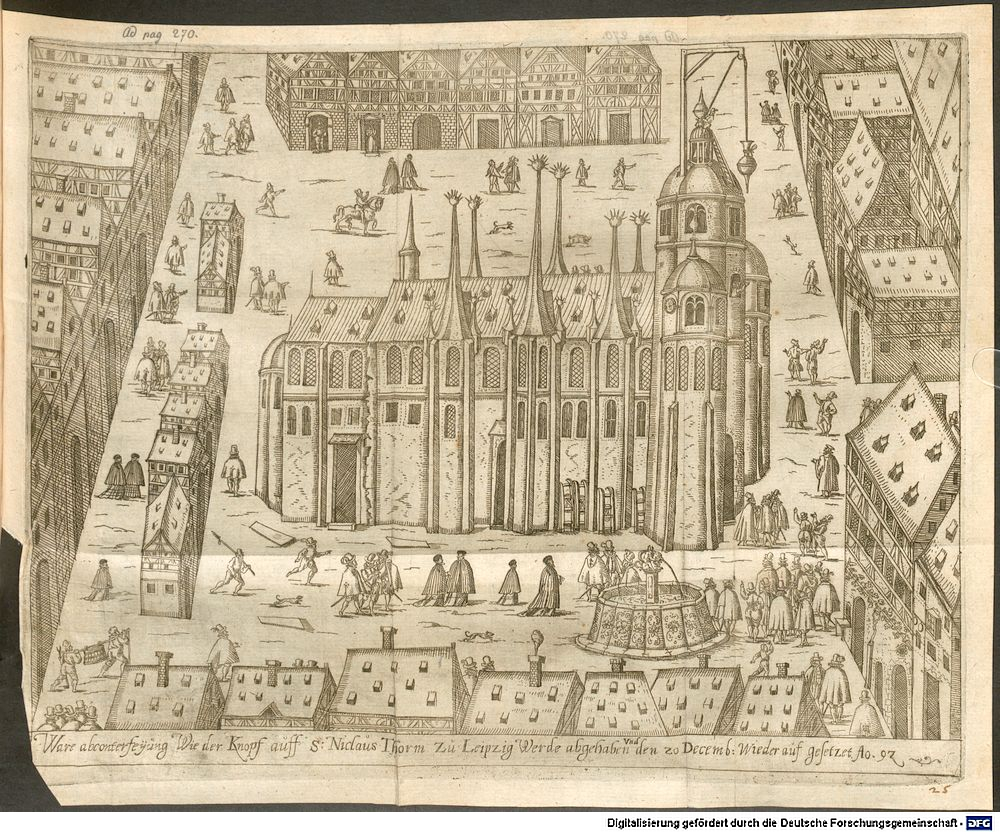 Ad pag 270.
Ware abconterfeÿung Wie der Knopf auff S: Niclaus Thorm Zu Leipzig Werde abgehaben Vnd den 20 Decemb: Wieder auf gesetzet Ao. 92
25
Digitalisierung gefördert durch die Deutsche Forschungsgemeinschaft - DFG